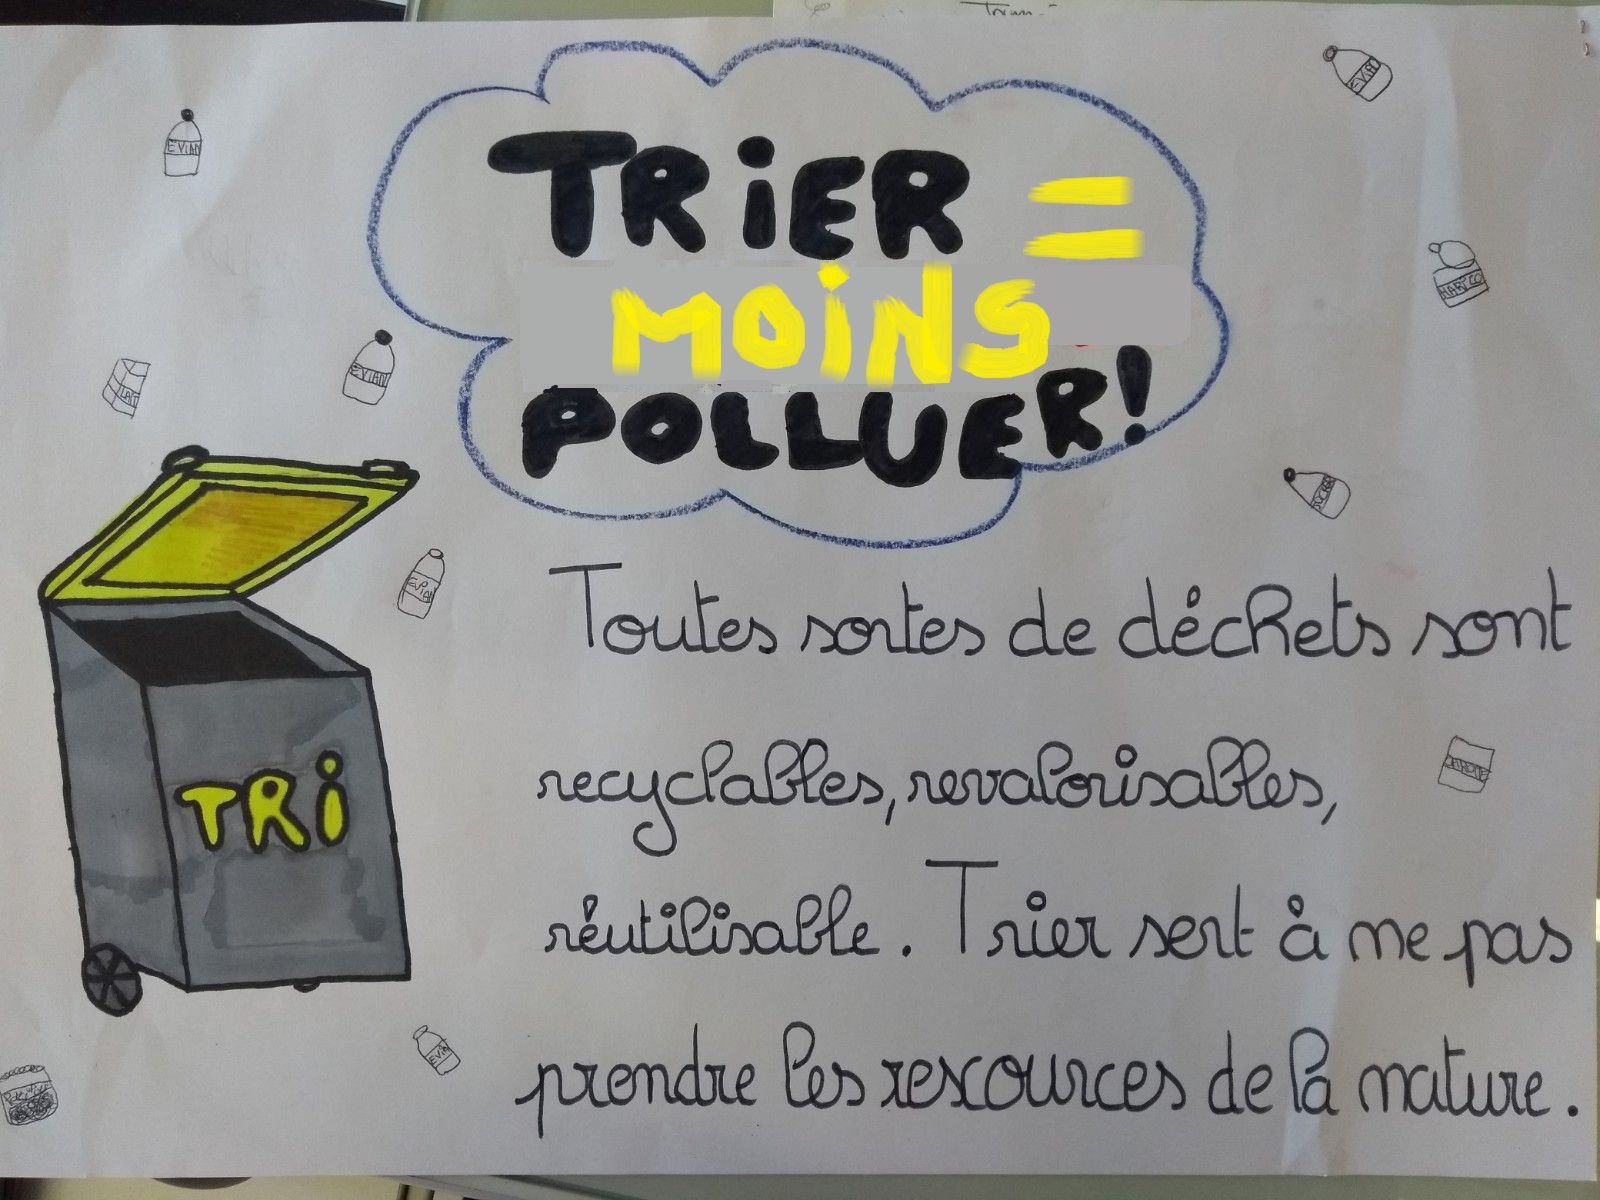 TRiER =
MOiNS
POLLUER!
EVIAN
EVIAN
EVIAN
EVIAN
EVIAN
TRi
Toutes sortes de déchets sont
recyclables, revalorisables,
réutilisable. Trier sert à ne pas
prendre les ressources de la nature.